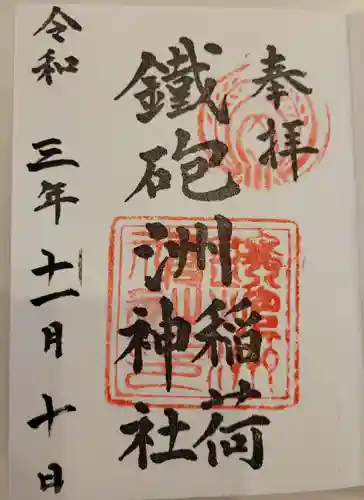 奉拝
鐵砲洲稲荷神社
令和 三年 十一月 十日